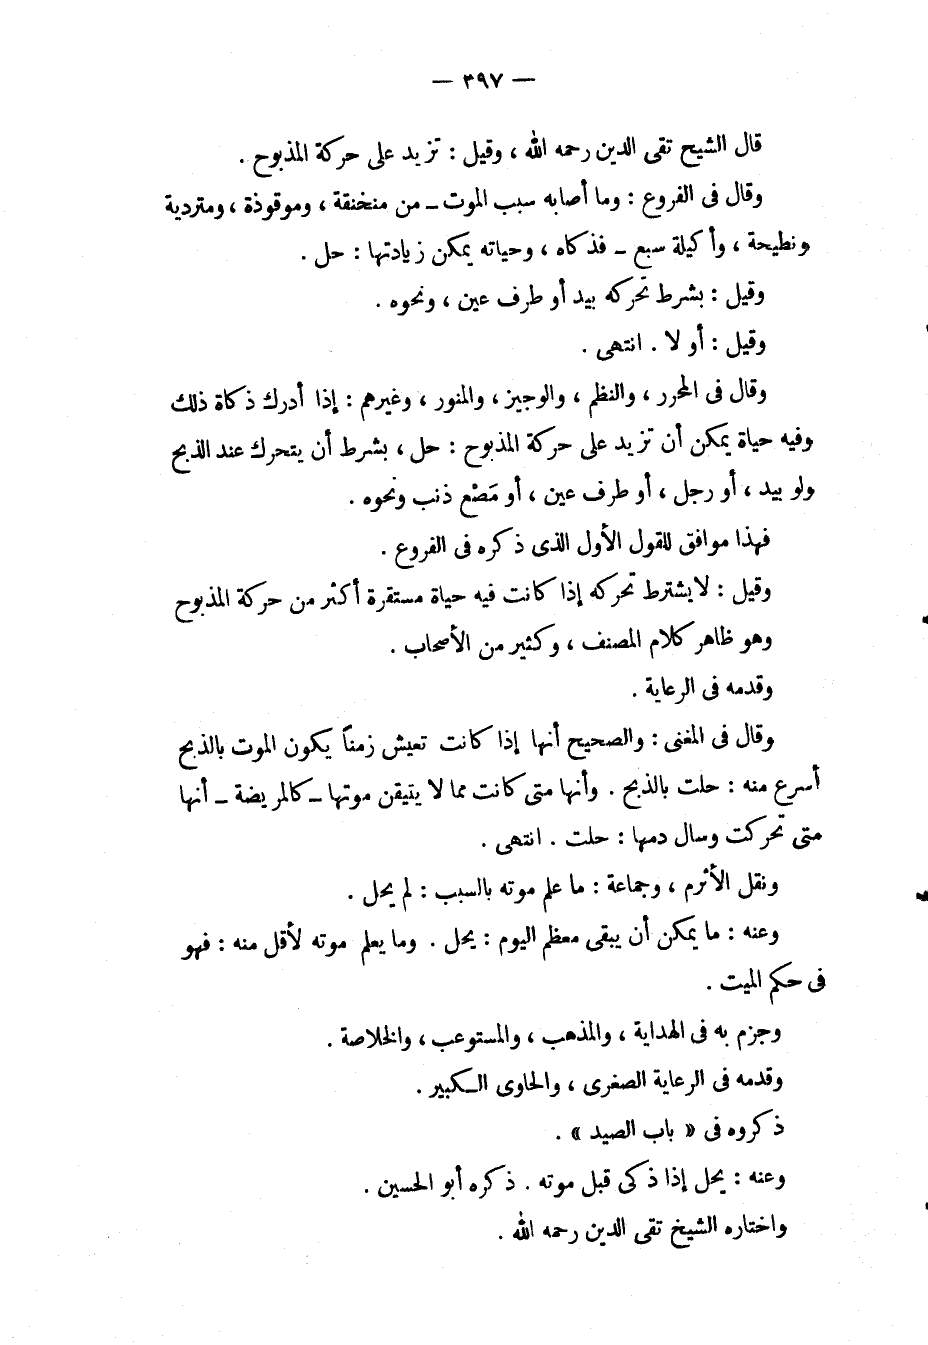 — ٣٩٧ —
قال الشيح تقى الدين رحمه الله ، وقيل : تزيد على حركة المذبوح .
وقال فى الفروع : وما أصابه سبب الموت ـ من منخنقة ، وموقوذة ، ومتردية
ونطيحة ، وأكيلة سبع ـ فذكاه ، وحياته يمكن زيادتها : حل .
وقيل : بشرط تحركه بيد أو طرف عين ، ونحوه .
وقيل : أو لا . انتهى .
وقال فى المحرر ، والنظم ، والوجيز ، والمنور ، وغيرهم : إذا أدرك ذكاة ذلك
وفيه حياة يمكن أن تزيد على حركة المذبوح : حل ، بشرط أن يتحرك عند الذبح
ولو بيد ، أو رجل ، أو طرف عين ، أو مَصْع ذنب ونحوه .
فهذا موافق للقول الأول الذى ذكره فى الفروع .
وقيل : لايشترط تحركه إذا كانت فيه حياة مستقرة أكثر من حركة المذبوح
وهو ظاهر كلام المصنف ، وكثير من الأصحاب .
وقدمه فى الرعاية .
وقال فى المغنى : والصحيح أنها إذا كانت تعيش زمناً يكون الموت بالذبح
أسرع منه : حلت بالذبح . وأنها متى كانت مما لا يتيقن موتها ـ كالمريضة ـ أنها
متى تحركت وسال دمها : حلت . انتهى .
ونقل الأثرم ، وجماعة : ما علم موته بالسبب : لم يحل .
وعنه : ما يمكن أن يبقى معظم اليوم : يحل . وما يعلم موته لأقل منه : فهو
فى حكم الميت .
وجزم به فى الهداية ، والمذهب ، والمستوعب ، والخلاصة .
وقدمه فى الرعاية الصغرى ، والحاوى الكبير .
ذكروه فى « باب الصيد » .
وعنه : يحل إذا ذكى قبل موته . ذكره أبو الحسين .
واختاره الشيخ تقى الدين رحمه الله .